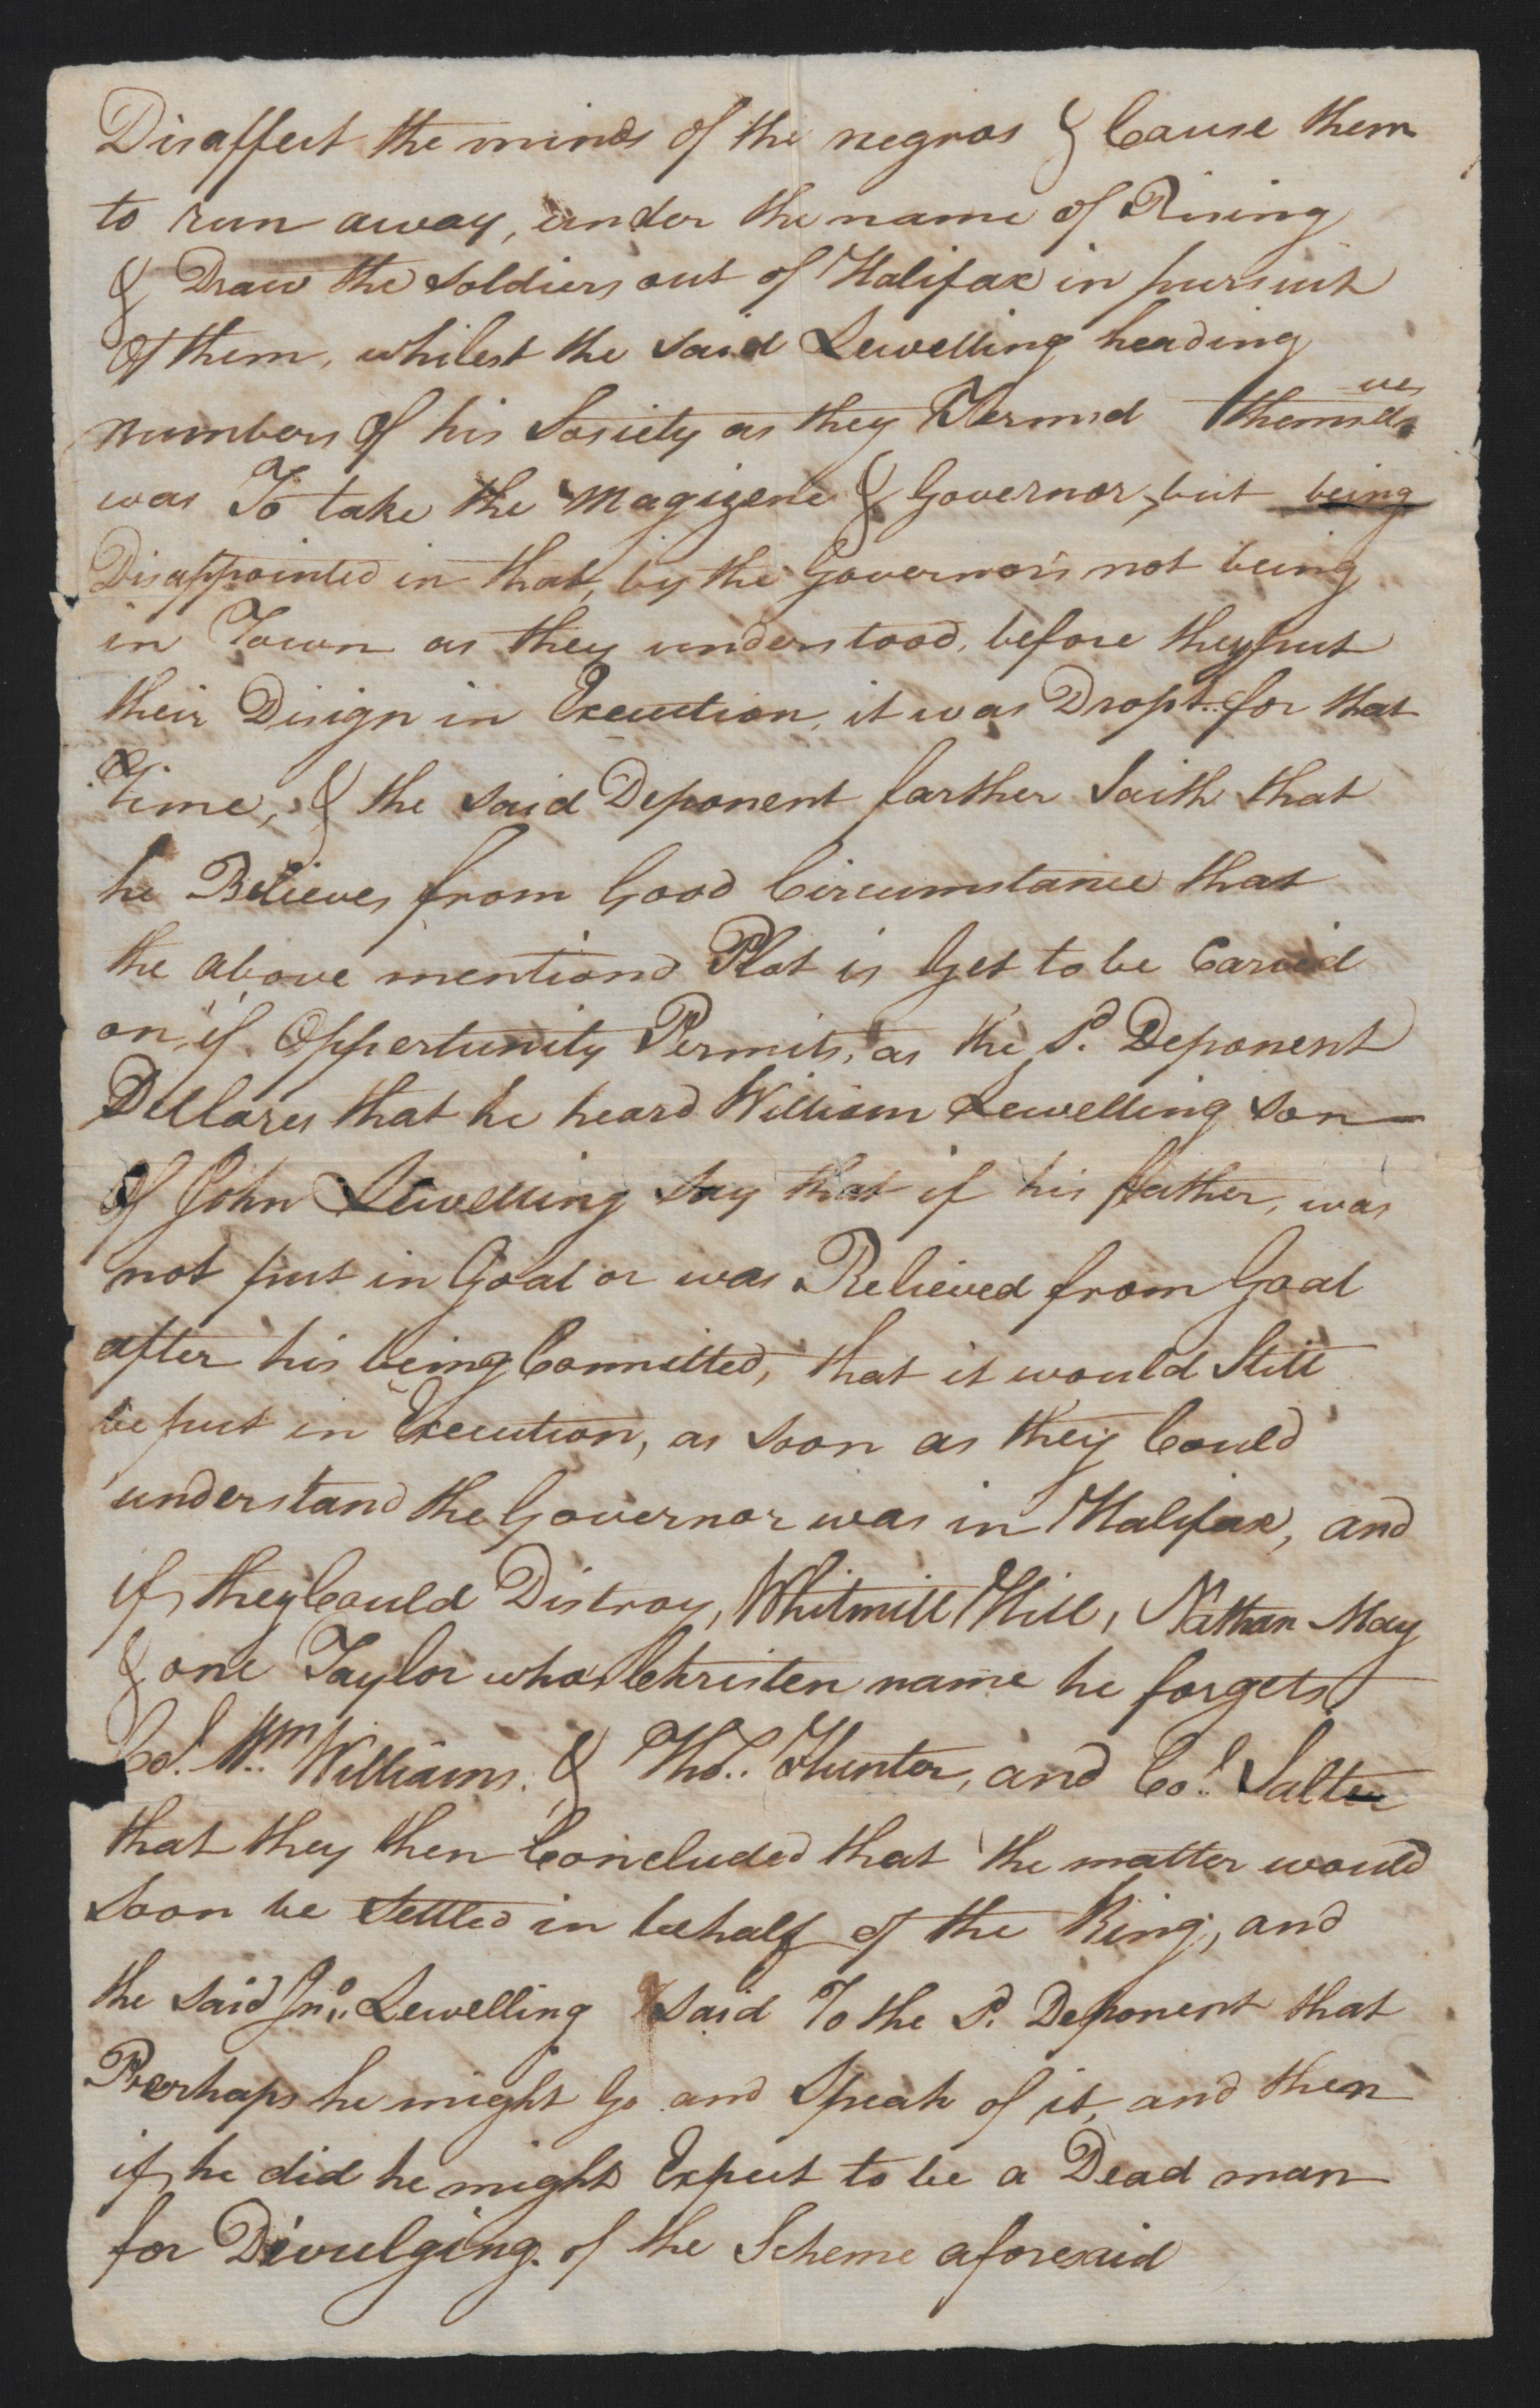 Disaffect the minds of the negros & Cause them
to run away, under the name of Rising
& Draw the Soldiers out of Halifax in pursuit
Of them, whilest the said Lewelling heading
numbers of his Society as they Termd themselves
was To take the Magizene & Governor, but being
Disappointed in that, by the Governors not being
in Town as they understood, before they put
their Disign in Execution, it was Dropt for that
time, & the said Deponent farther Saith that
he Believes from Good Circumstance that
the above mentiond Plot is Yet to be Caried
on, if Oppertunity Permits, as the Sd. Deponent
Dellares that he heard William Lewelling son
Of John Lewelling say that if his father, was
not put in Goal or was Relieved from Goal
after his being Committed, that it would Still
be put in Execution, as soon as they Could
understand the Governor was in Halifax, and
if they Could Distroy, Whitmill Hill, Nathan May
& one Taylor whos Christen name he forgets
Col. Wm. Williams. & Thos. Hunter, and Col. Salter
that they then Concluded that the matter would
soon be Settled in behalf of the King, and
the said Jno. Lewelling said To the Sd. Deponent that
Perhaps he might Go and Speak of it, and then
if he did he might Expect to be a Dead man
for Divulging. of the Scheme aforesaid